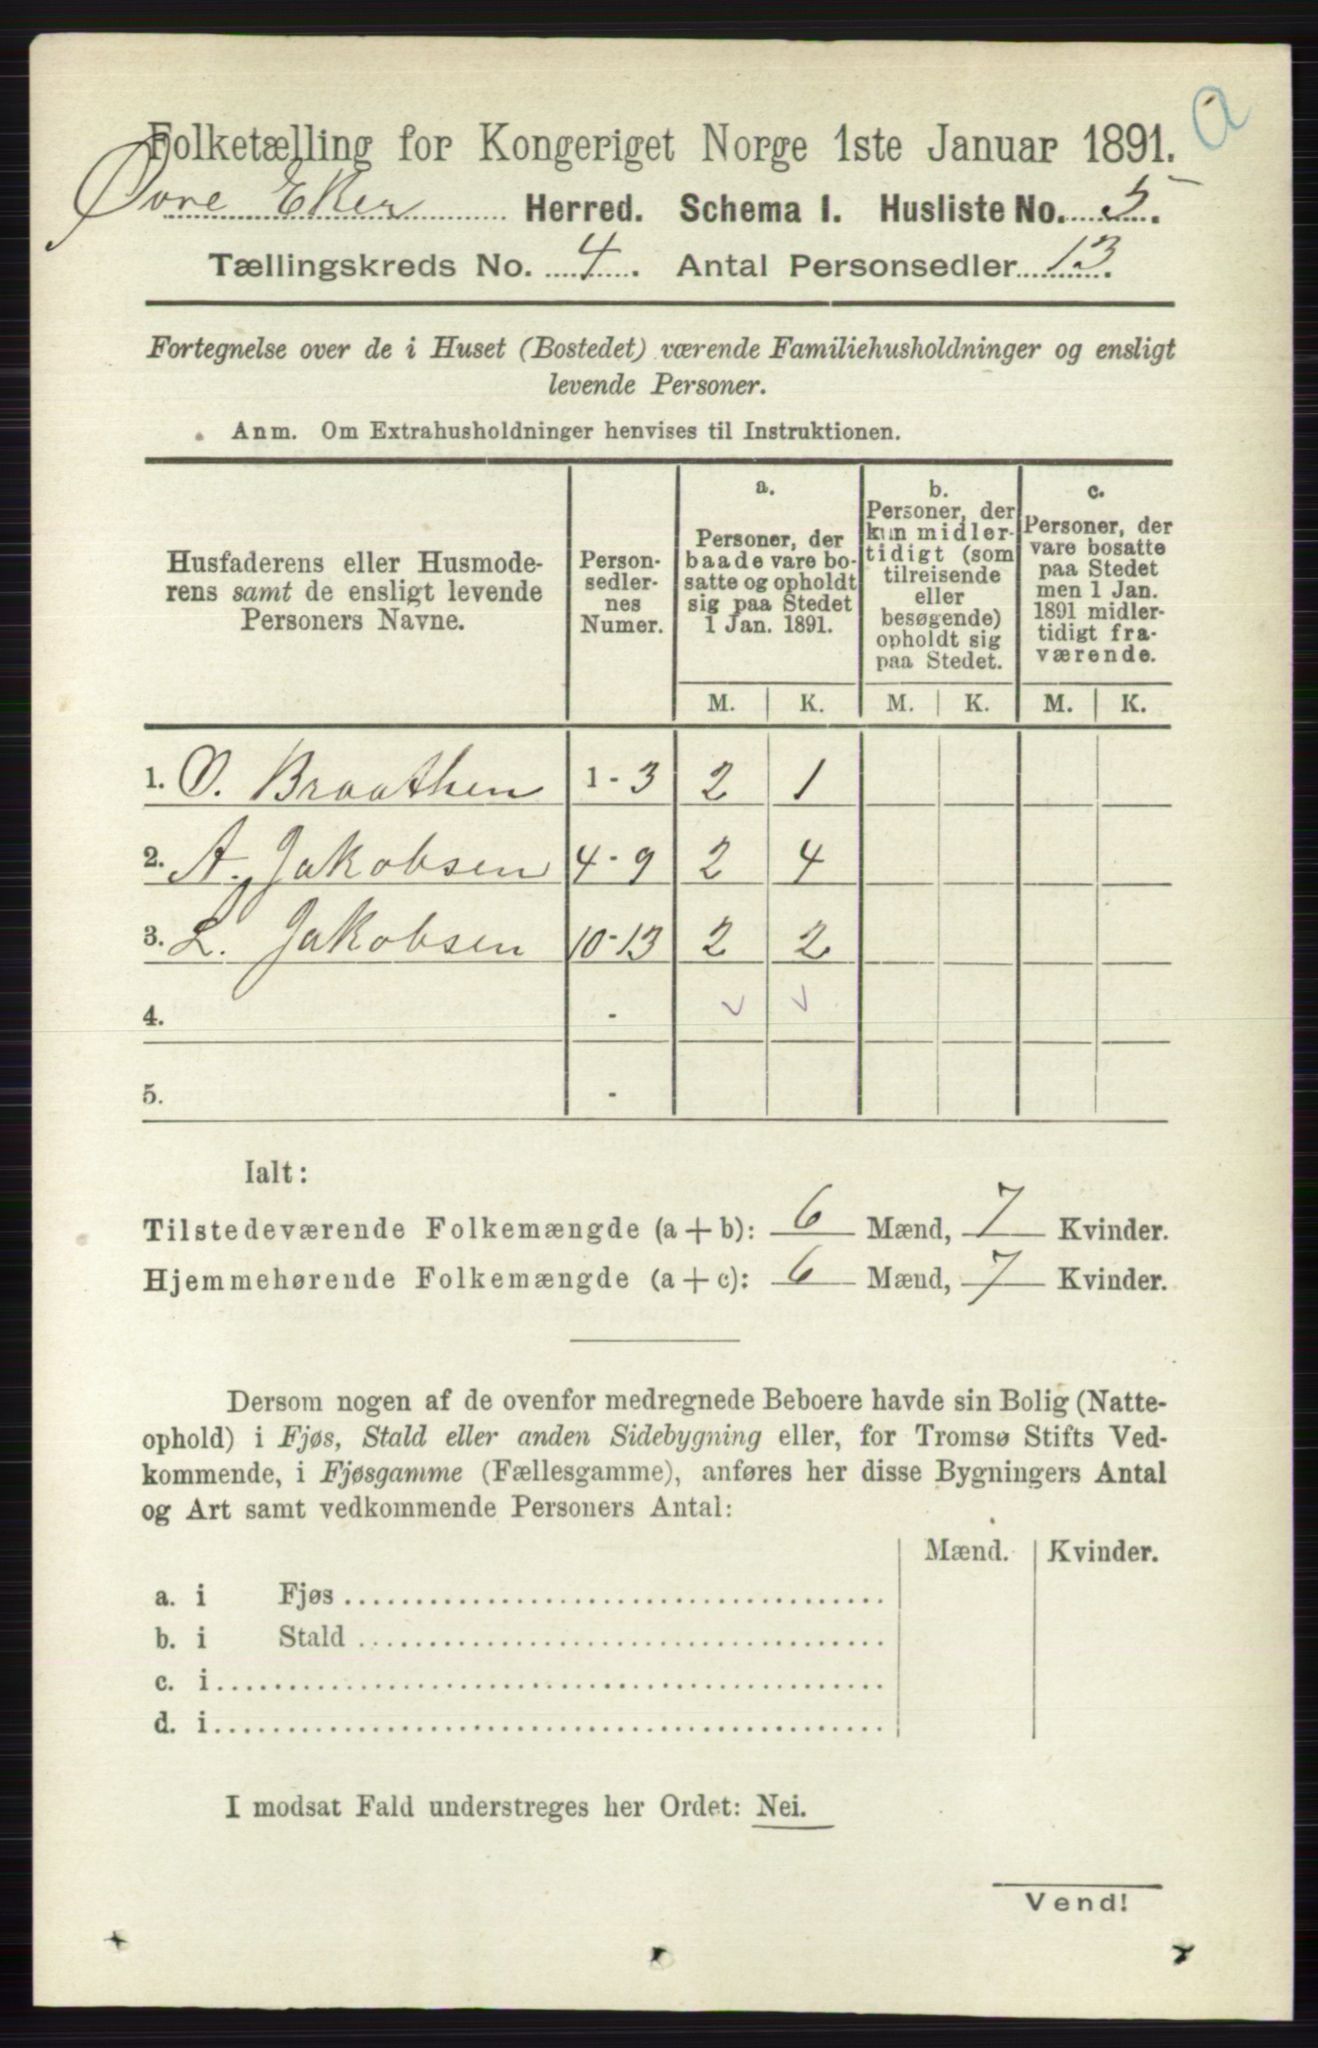 a
Folketælling for Kongeriget Norge 1ste Januar 1891.
Øvre Eker Herred. Schema I. Husliste No. 5.
Tællingskreds No. 4. Antal Personsedler 13.
Fortegnelse over de i Huset (Bostedet) værende Familiehusholdninger og ensligt
levende Personer.
Anm. Om Extrahusholdninger henvises til Instruktionen.
Husfaderens eller Husmode-
rens samt de ensligt levende
Personers Navne.
Person-
sedler-
nes
Numer.
a.
Personer, der
baade vare bo-
satte og opholdt
sig paa Stedet
1 Jan. 1891.
b.
Personer, der
kun midler-
tidigt (som
tilreisende
eller
besøgende)
opholdt sig
paa Stedet.
c.
Personer, der
vare bosatte
paa Stedet
men 1 Jan.
1891 midler-
tidigt fra-
værende.
M. K. M. K. M. K.
1. O. Braathen 1-3 2 1
2. A. Jakobsen 4-9 2 4
3. L. Jakobsen 10-13 2 2
4. -
5. -
Ialt:
Tilstedeværende Folkemængde (a + b): 6 Mænd, 7 Kvinder.
Hjemmehørende Folkemængde (a + c): 6 Mænd, 7 Kvinder.
Dersom nogen af de ovenfor medregnede Beboere havde sin Bolig (Natte-
ophold) i Fjøs, Stald eller anden Sidebygning eller, for Tromsø Stifts Ved-
kommende, i Fjøsgamme (Fællesgamme), anføres her disse Bygningers Antal
og Art samt vedkommende Personers Antal:
Mænd. Kvinder.
a. i Fjøs
b. i Stald
c. i
d. i
I modsat Fald understreges her Ordet: Nei.
Vend!